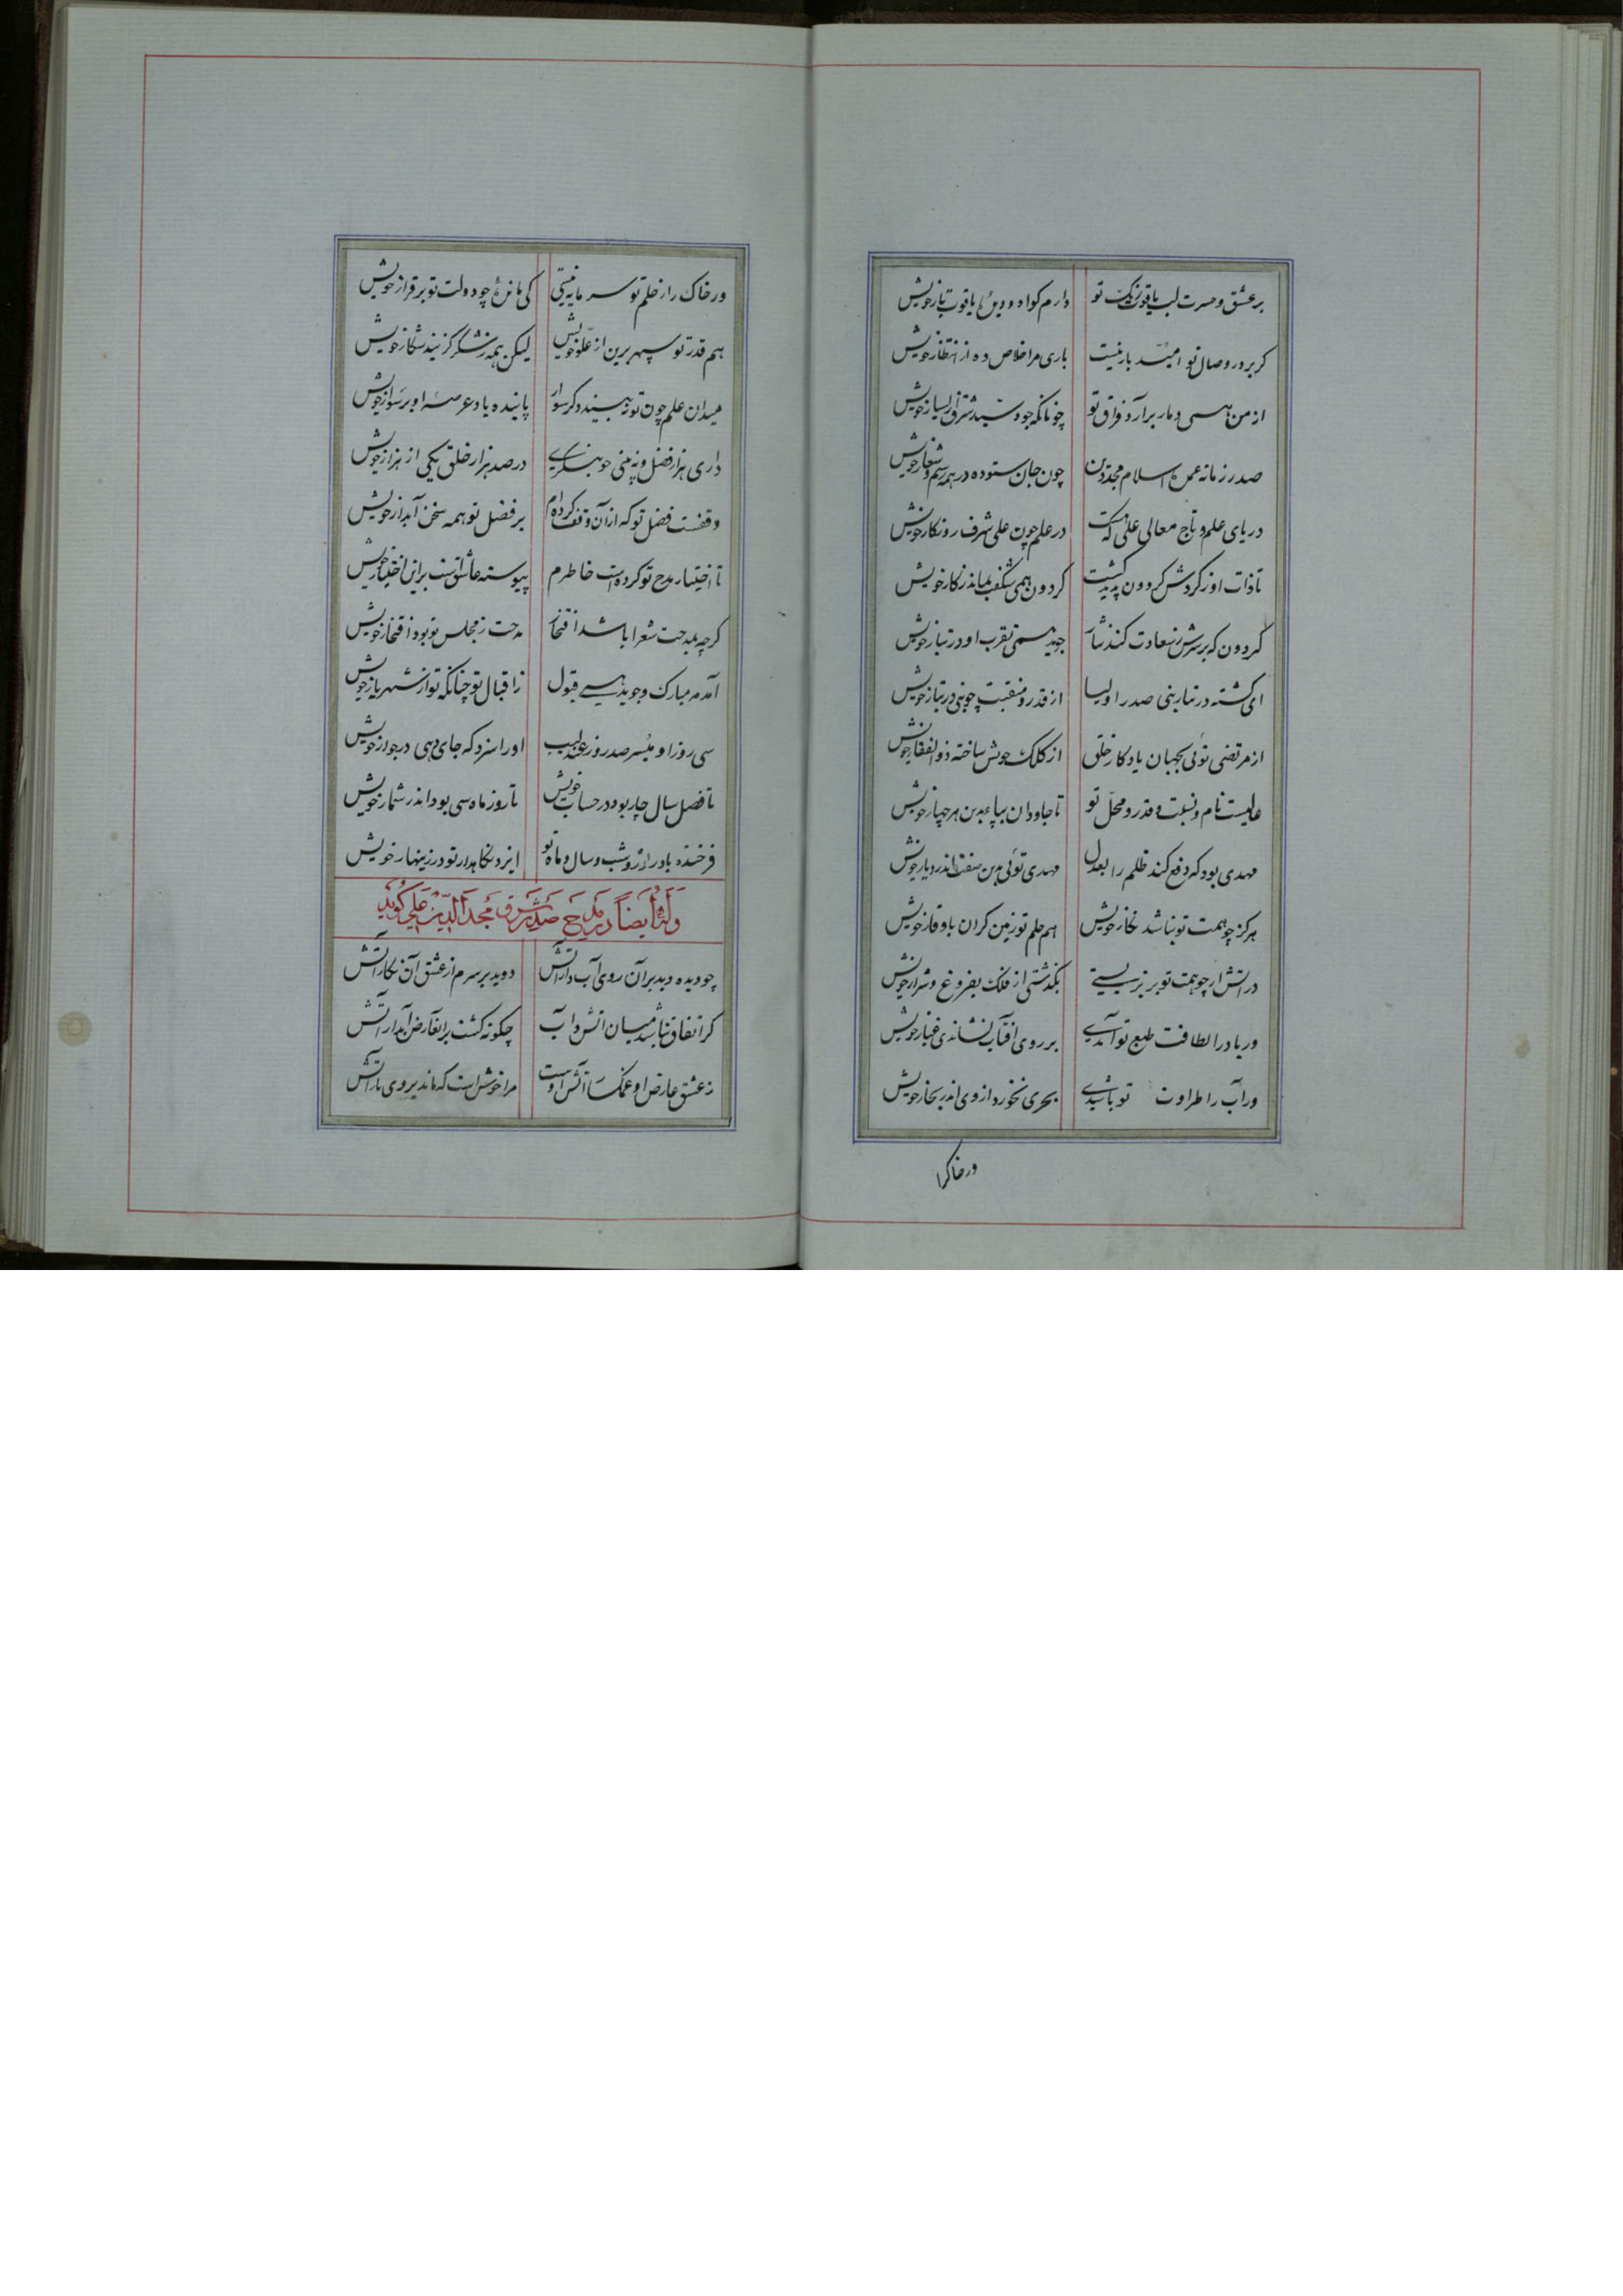 بر عشق و حسرت لب یاقوت رنگ تو دارم گواه دو دیدهٔ یاقوت بار خویش
گر بر در وصال تو امید بار نیست باری مرا خلاص ده از انتظار خویش
از من همی دمار برآرد فراق تو چونانکه جود سید شرق از یسار خویش
صدر زمانه عمدهٔ اسلام مجد دین چون جان ستوده در همه رسم و شعار خویش
دریای علم و تاج معالی علی که در علم چون علی شرف روزگار خویش
تا ذات او ز گردش گردون پدید گشت گردون همی شگفت بماند ز کار خویش
گردون که بر سرش ز سعادت کند نثار جوید همی تقرب او در نثار خویش
ای گشته در تبار نبی صدر اولیا از قدر و منقبت چو نبی در تبار خویش
از مرتضی توئی بجهان یادگار خلق از کلک خویش ساخته ذوالفقار خویش
عالیست نام و نسبت و قدر و محل تو تا جاودان بپای بدین هر چهار خویش
مهدی بود که دفع کند ظلم را بعدل مهدی توئی بدین صفت اندر دیار خویش
هرگز چو همت تو نباشد هم حلم تو زمین گران با وقار خویش
در آتش ار چو همت تو بر تریستی بگذشتی از فلک بفروغ و شرار خویش
ور باد را لطافت طبع تو آمدی بر روی آفتاب نشاندی غبار خویش
ور آب را طراوت تو باشدی بحری نخوردی از وی اندر بحار خویش
ور خاکرا
ور خاک را ز حلم تو سرمایه نیستی کی ماندی چو دولت تو برقرار خویش
هم قدر تو سپهر برین از علو خویش لیکن همه ز شکر گزیند شکار خویش
میدان علم چون تو نه بیند دگر سوار پاینده باد عرصهٔ او بر سوار خویش
داری هزار فضل و نه بینی چو در صد هزار خلق یکی از هزار خویش
وقفست فضل تو که از آن وقف کرده‌ام بر فضل تو همه سخن آبدار خویش
تا اختیار مدح تو کرده است خاطرم پیوسته عاشق است برین اختیار خویش
گرچه بمدحت شعرا باشد افتخار مدحت ز مجلس تو بود افتخار خویش
آمد مه مبارک و جوید همی قبول ز اقبال تو چنانکه تو از شهریار خویش
سی روز او میسر صد روز او را سزد که جای دهی در جوار خویش
تا فصل سال چار بود در حساب خویش تا روز ماه سی بود اندر شمار خویش
فرخنده باد روز و شب و سال و ماه تو ایزد نگاهدار تو در زینهار خویش
وله ایضاً در مدح صدر شرق مجدالدین علی گوید
چو دیده دید بر آن روی آبدار آتش دوید بر سرم از عشق آن نگار آتش
گر اتفاق نباشد میان آتش و آب چگونه گشت بر آن عارض آبدار آتش
ز عشق عارض او آتش اوست مرا خوش است که ماند بروی یار آتش